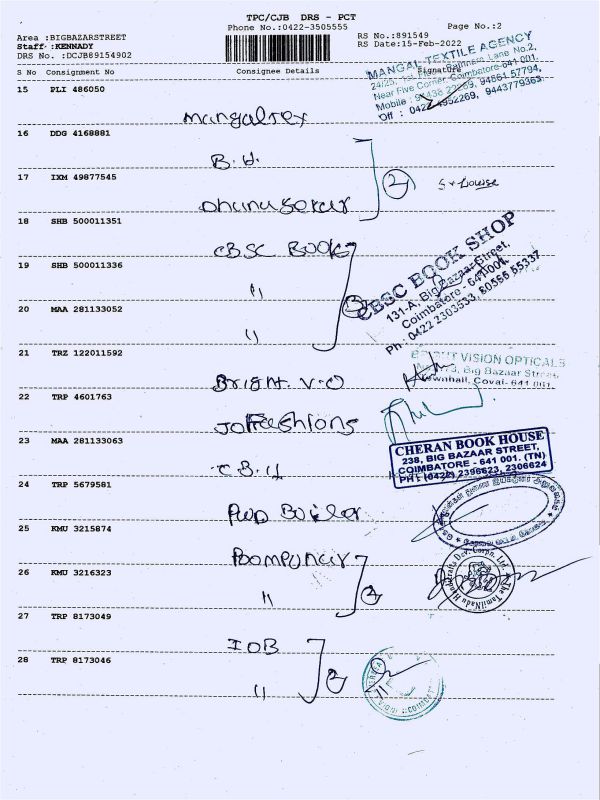 TPC/CJB DRS - PCT
Phone No.:0422-3505555
Page No.:2
Area :BIGBAZARSTREET
RS No.:891549
Staff :KENNADY
RS Date:15-Feb-2022
DRS No. :DCJB89154902
S No Consignment No Consignee Details Signature
MANGAL TEXTILE AGENCY
Near Five Corner, Coimbatore-641 001.
15 PLI 486050
Mangaltex
16 DDG 4168881
B.H.
17 IXM 49877545
2
Dhanusekar
18 SHB 500011351
CBSC BOOK
19 SHB 500011336
"
3
CBSC BOOK SHOP
131-A, Big Bazaar Street,
Coimbatore - 641 001.
Ph : 0422 2303533, 80566 55337
20 MAA 281133052
"
21 TRZ 122011592
Bright. V.O
BRIGHT VISION OPTICALS
Big Bazaar Street,
Townhall, Covai- 641 001.
22 TRP 4601763
Jo Fashions
23 MAA 281133063
C.B.H
CHERAN BOOK HOUSE
238, BIG BAZAAR STREET,
COIMBATORE - 641 001. (TN)
PH : (0422) 2396623, 2306624
24 TRP 5679581
PWD Boiler
25 KMU 3215874
Poompuhar
26 KMU 3216323
"
2
The TamilNadu Handicrafts Dev. Corpn. Ltd.
27 TRP 8173049
IOB
28 TRP 8173046
"
2